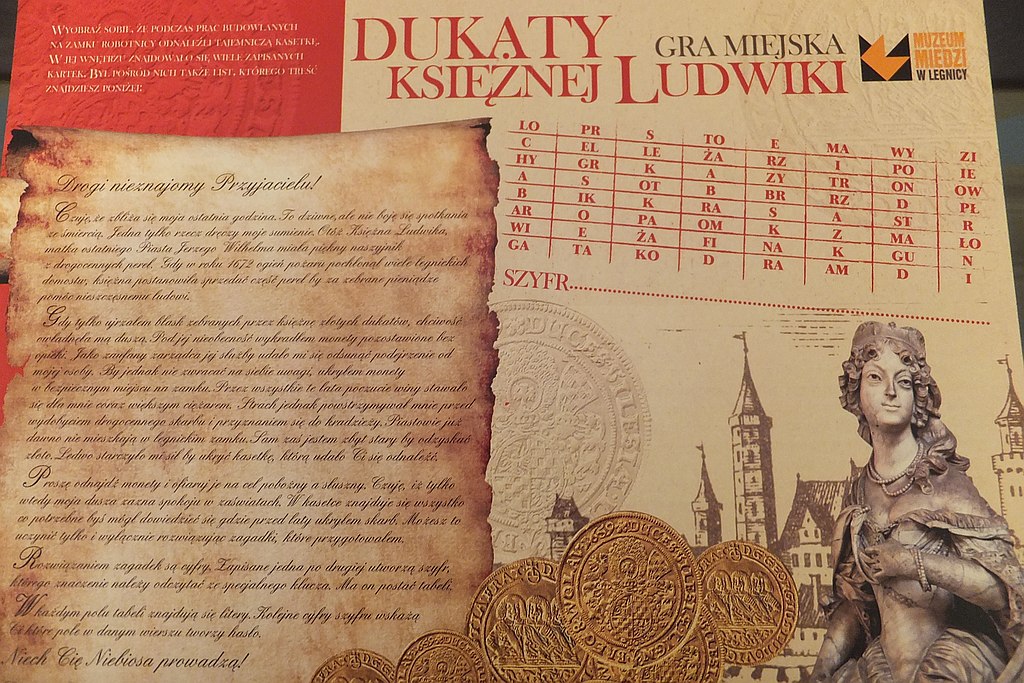 WYOBRAŹ SOBIE, ŻE PODCZAS PRAC BUDOWLANYCH
NA ZAMKU ROBOTNICY ODNALEŹLI TAJEMNICZĄ KASETKĘ.
W JEJ WNĘTRZU ZNAJDOWAŁO SIĘ WIELE ZAPISANYCH
KARTEK. BYŁ POŚRÓD NICH TAKŻE LIST, KTÓREGO TREŚĆ
ZNAJDZIESZ PONIŻEJ:
DUKATY
KSIĘŻNEJ LUDWIKI
GRA MIEJSKA
MUZEUM
MIEDZI
W LEGNICY
LO PR S TO E MA WY ZI
C EL LE ŻA RZ I PO IE
HY GR K A ZY TR ON OW
A S OT B BR RZ D PŁ
B IK K RA S A ST R
AR O PA OM K Z MA ŁO
WI E ŻA FI NA K GU N
GA TA KO D RA AM D I
SZYFR
Drogi nieznajomy Przyjacielu!
Czuję, że zbliża się moja ostatnia godzina. To dziwne, ale nie boję się spotkania
ze śmiercią. Jedna tylko rzecz dręczy moje sumienie. Otóż Księżna Ludwika,
matka ostatniego Piasta Jerzego Wilhelma miała piękny naszyjnik
z drogocennych pereł. Gdy w roku 1672 ogień pożaru pochłonął wiele legnickich
domostw, księżna postanowiła sprzedać część pereł by za zebrane pieniądze
pomóc nieszczęsnemu ludowi.
Gdy tylko ujrzałem blask zebranych przez księżnę złotych dukatów, chciwość
owładnęła mą duszą. Pod jej nieobecność wykradłem monety pozostawione bez
opieki. Jako zaufany zarządca jej służby udało mi się odsunąć podejrzenie od
mojej osoby. By jednak nie zwracać na siebie uwagi, ukryłem monety
w bezpiecznym miejscu na zamku. Przez wszystkie te lata poczucie winy stawało
się dla mnie coraz większym ciężarem. Strach jednak powstrzymywał mnie przed
wydobyciem drogocennego skarbu i przyznaniem się do kradzieży. Piastowie już
dawno nie mieszkają w legnickim zamku. Sam zaś jestem zbyt stary by odzyskać
złoto. Ledwo starczyło mi sił by ukryć kasetkę, którą udało Ci się odnaleźć.
Proszę odnajdź monety i ofiaruj je na cel pobożny a słuszny. Czuję, iż tylko
wtedy moja dusza zazna spokoju w zaświatach. W kasetce znajduje się wszystko
co potrzebne byś mógł dowiedzieć się gdzie przed laty ukryłem skarb. Możesz to
uczynić tylko i wyłącznie rozwiązując zagadki, które przygotowałem.
Rozwiązaniem zagadek są cyfry. Zapisane jedna po drugiej utworzą szyfr,
którego znaczenie należy odczytać ze specjalnego klucza. Ma on postać tabeli.
W każdym polu tabeli znajdują się litery. Kolejne cyfry szyfru wskażą
Ci które pole w danym wierszu tworzy hasło.
Niech Cię Niebiosa prowadzą!